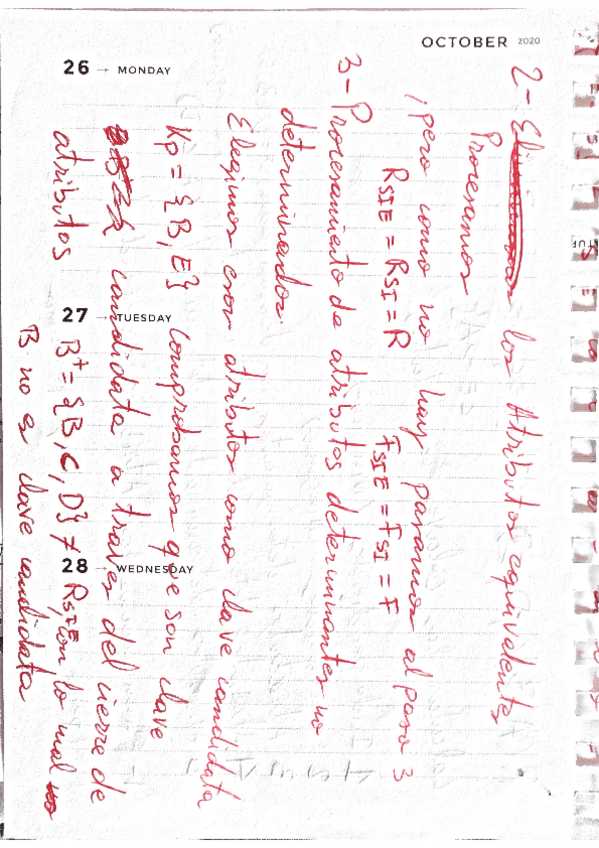 OCTOBER 2020
26 → MONDAY
27 → TUESDAY
28 → WEDNESDAY
2- los Atributos equivalentes
Procesamos
¡pero como no hay pasamos al paso 3
R_SIE = R_SI = R F_SIE = F_SI = F
3- Procesamiento de atributos determinantes no
determinados.
Elegimos esos atributos como clave candidata
Kp = {B, E} comprobamos que son clave
candidata a traves del cierre de
atributos B⁺ = {B, C, D} ≠ R_SIE, con lo cual
B no es clave candidata